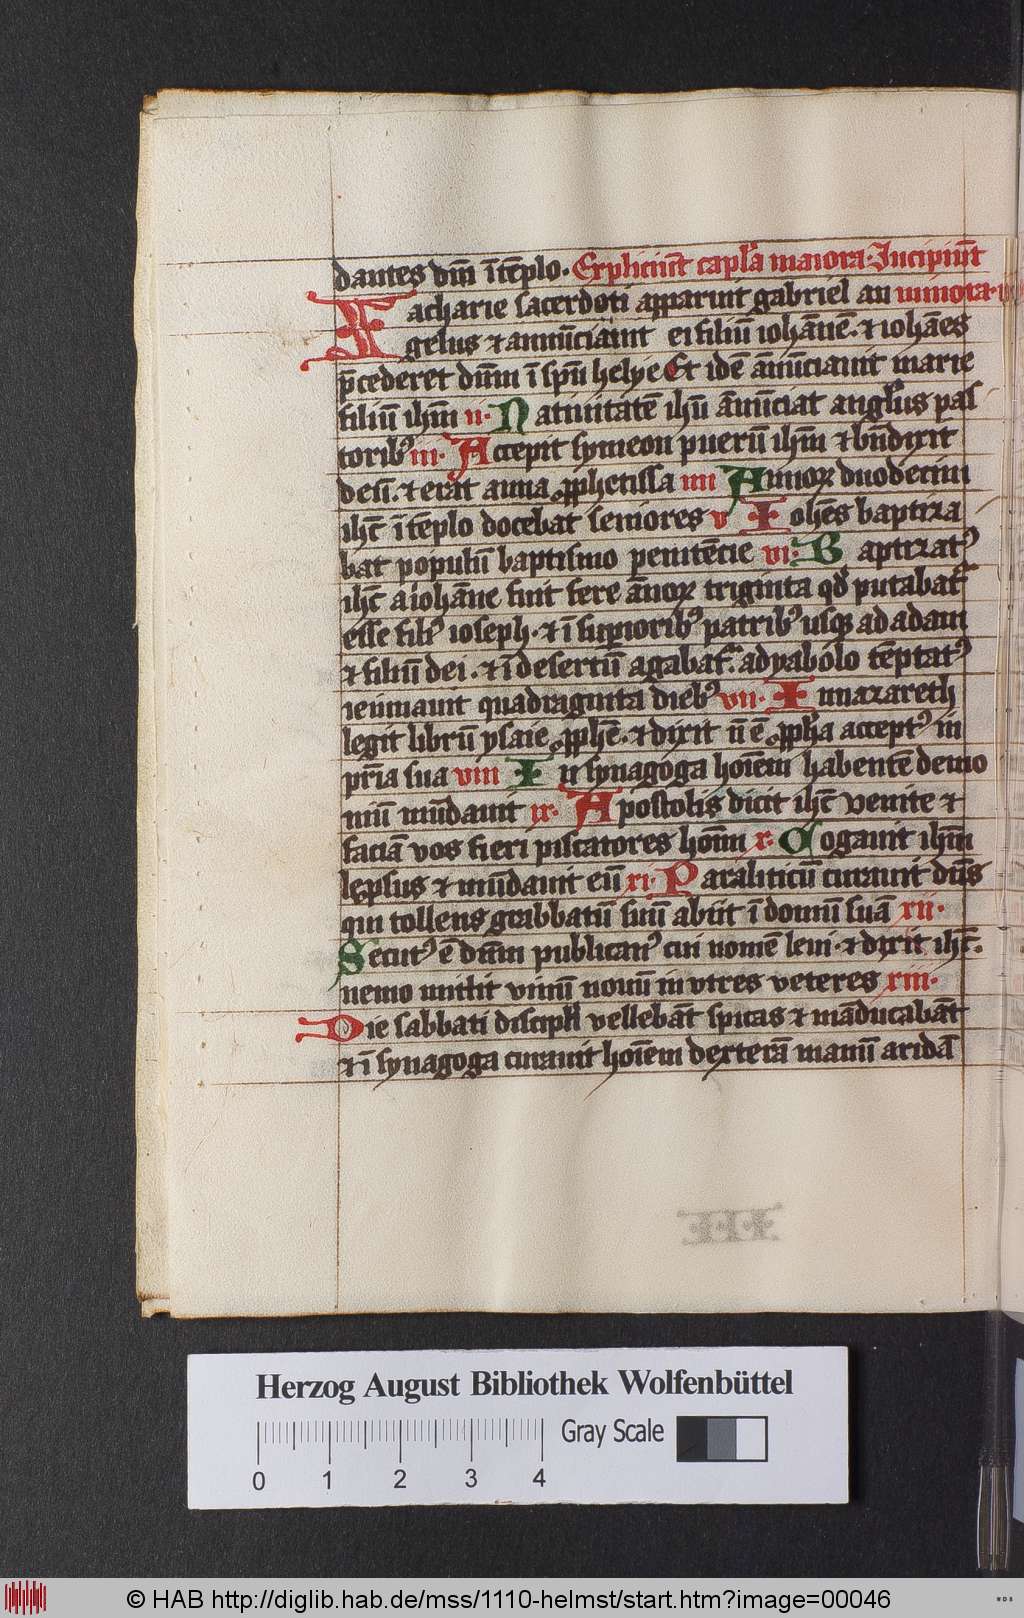 dantes dn̄m ī tēplo. Expliciūt capl̄a maiora. Incipiūt
Zacharie sacerdoti apparuit gabriel an minora.
gelus ⁊ annūciauit ei filiū iohānē. ⁊ iohāes
p̄cederet dn̄m ī sp̄u helye Et idē ānūciauit marie
filiū ih̄m ii. Natiuitatē ih̄u ānūciat angl̄us pas
toribꝰ iii. Accepit symeon puerū ih̄m ⁊ bn̄dixit
desī. ⁊ erat anna ꝓphetissa iiii Annoꝝ duodecim
ih̄c ī tēplo docebat seniores v Iohēs baptiza
bat populū baptismo penitēcie vi. Baptizatꝰ
ih̄c a iohāne fuit fere ānoꝝ triginta qd̄ putabat᷑
esse filiꝰ ioseph. ⁊ ī supioribꝰ patribꝰ usqꝫ ad adam
⁊ filiū dei. ⁊ ī desertū agabat᷑. a dyabolo tēptatꝰ
ieiunauit quadraginta diebꝰ vii. In nazareth
legit librū ysaie ꝓphē. ⁊ dixit n̄ ē ꝓph̄a acceptꝰ in
pr̄ia sua viii In synagoga hoīem habentē demo
niū mūdauit ix. Apostolis dicit ih̄c venite ⁊
faciā vos fieri piscatores hoīm x. Rogauit ih̄m
lepsus ⁊ mūdauit eū xi. Paraliticū curauit dn̄s
qui tollens grabbatū suū abiit ī domū suā xii.
Secutꝰ ē dn̄m publicanꝰ cui nomē leui. ⁊ dixit ih̄c.
nemo mittit vinū nouū in vtres veteres xiii.
Die sabbati discipl̄i vellebāt spicas ⁊ māducabāt
⁊ ī synagoga curauit hoīem dexterā manū aridā
Herzog August Bibliothek Wolfenbüttel
Gray Scale
0 1 2 3 4
© HAB http://diglib.hab.de/mss/1110-helmst/start.htm?image=00046